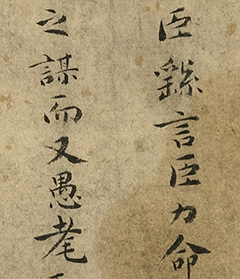 臣繇言臣力命
之謀而又愚耄